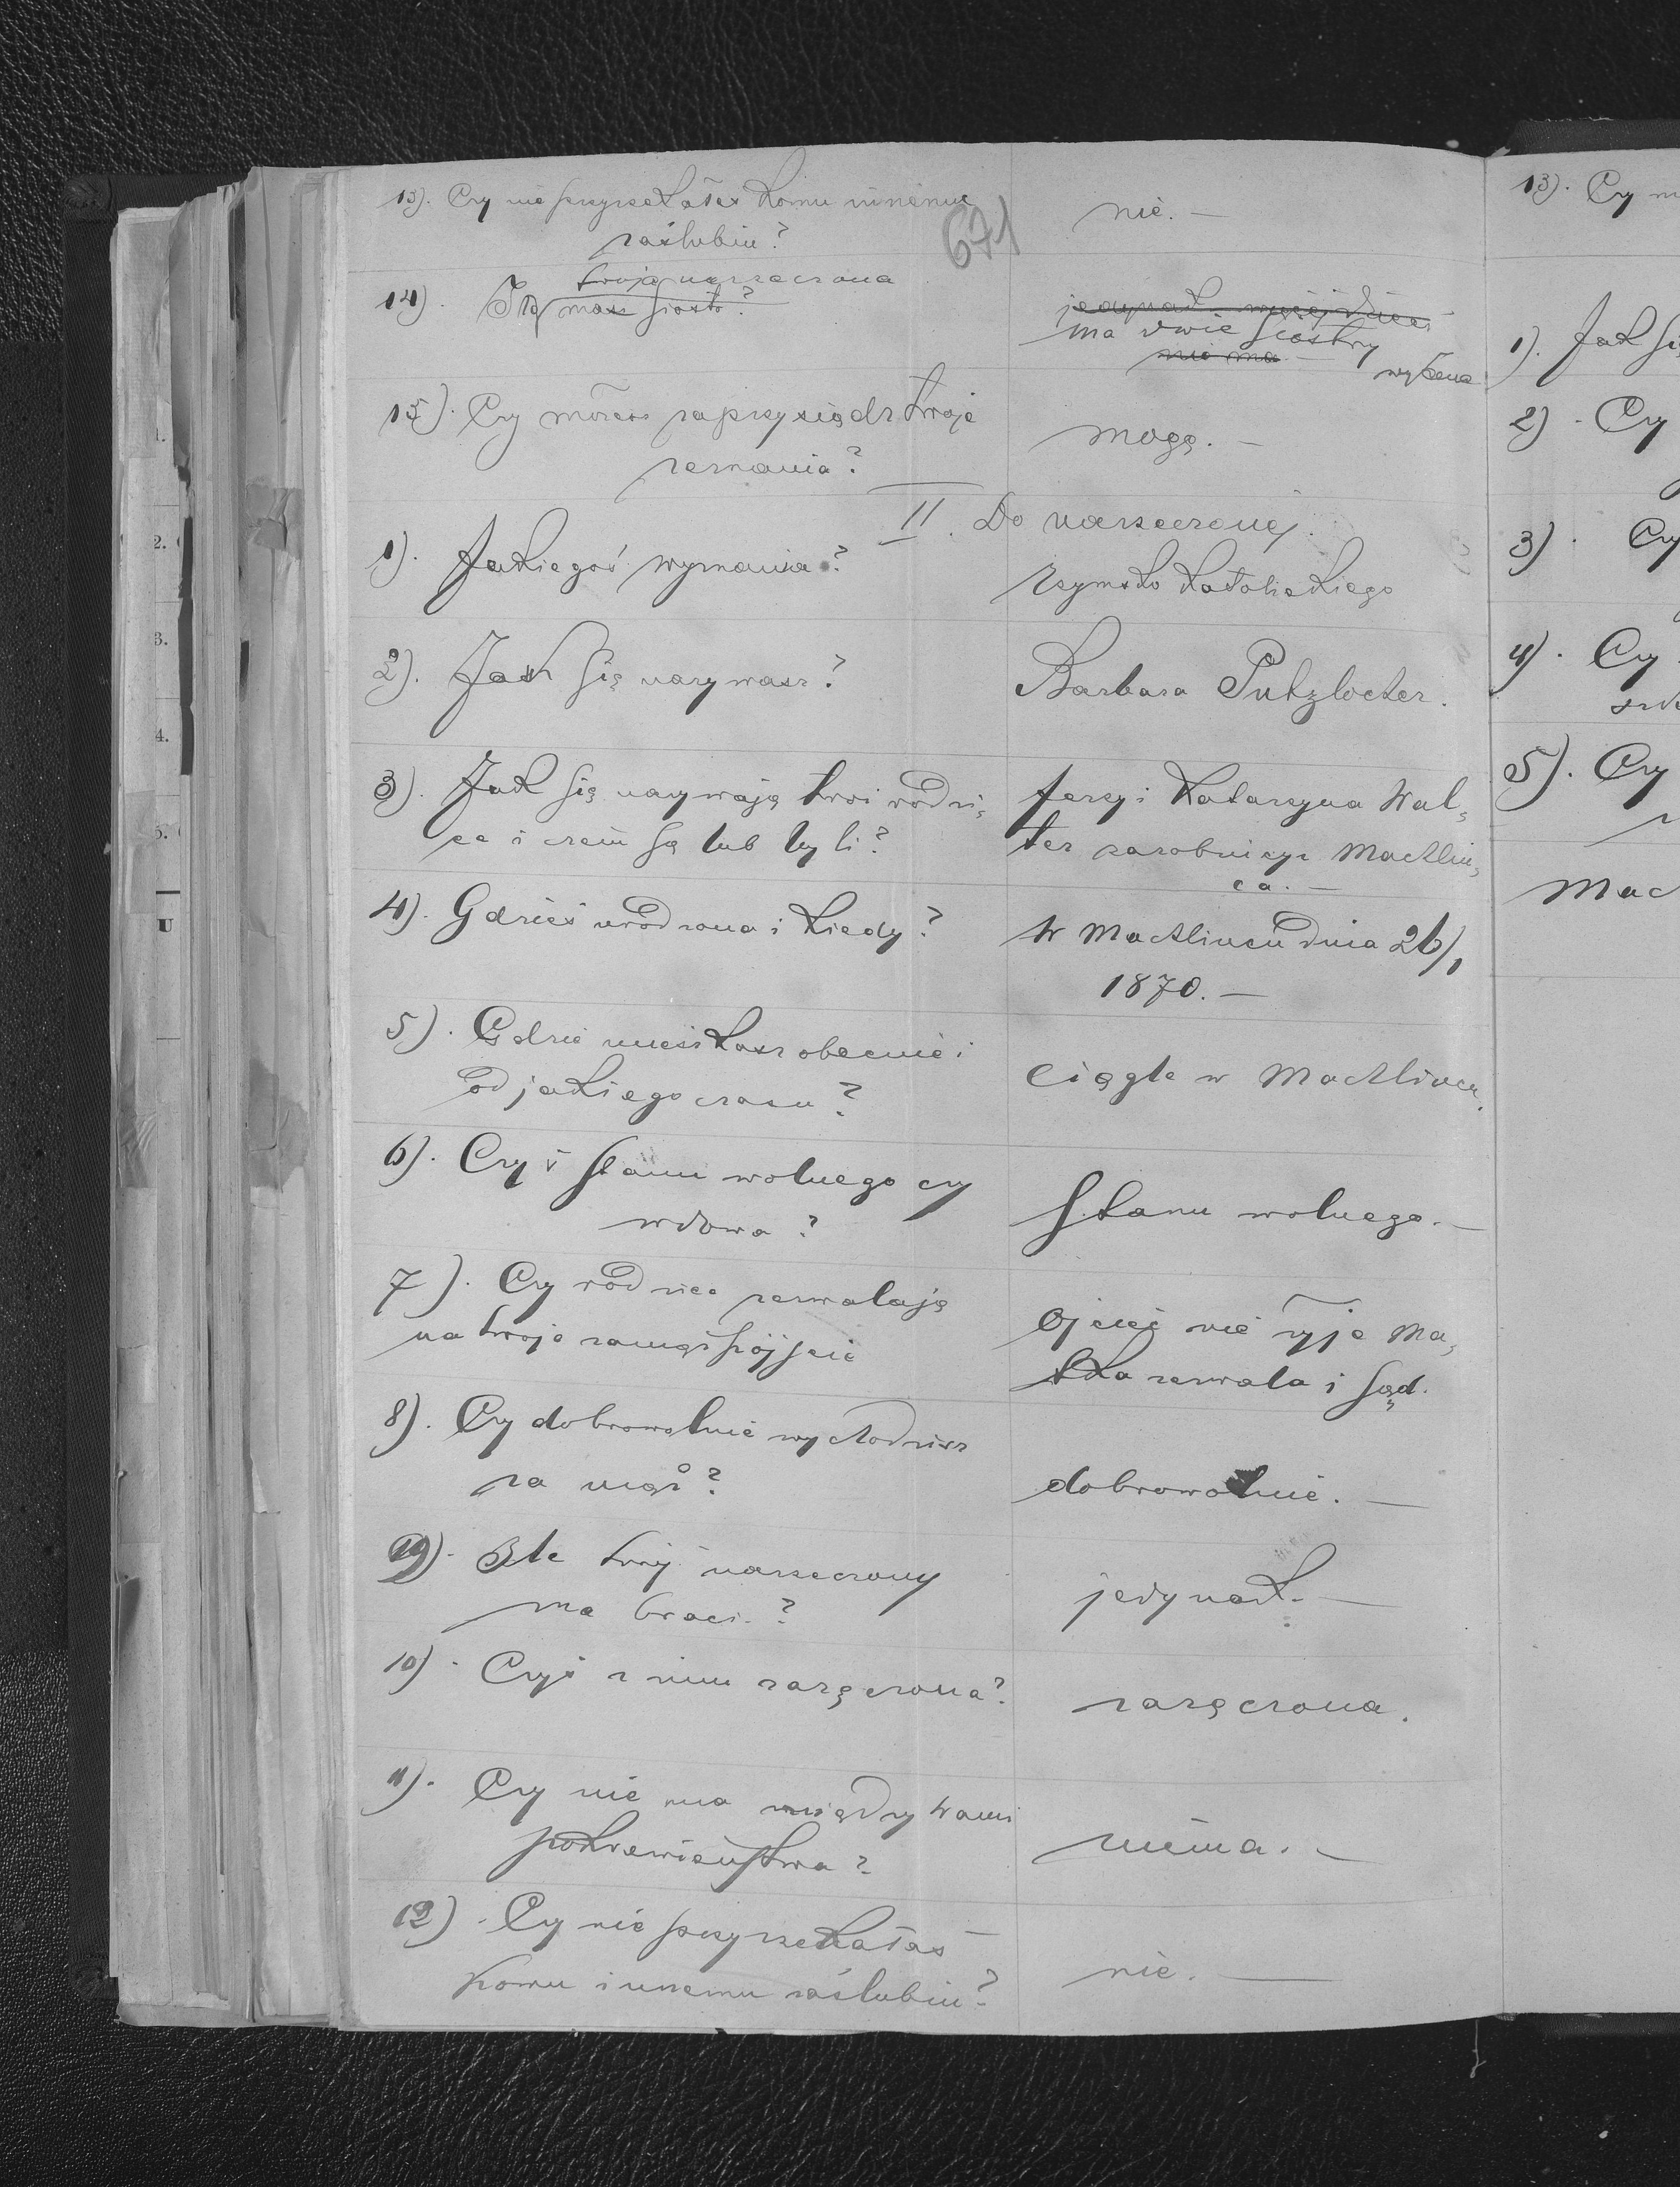 13). Czy nie przyrzekałeś komu innemu
zaślubin?
nie. —
671
twoja narzeczona
14). Ile masz siostr?
ma dwie siostry
nie ma —
15). Czy możesz zaprzysiądz twoje
zeznania?
mogę. —
II. Do narzeczonej.
1). Jakiegoś wyznania?
Rzymsko Katolickiego
2). Jak się nazywasz?
Barbara Putzlocher.
3). Jak się nazywają twoi rodzi,
ce i czem są lub byli?
Jerzy i Katarzyna Wal,
ter zarobnicy z Machliń,
ca. —
4). Gdzieś urodzona i kiedy?
W Machlińcu dnia 26/1
1870. —
5). Gdzie mieszkasz obecnie i
od jakiego czasu?
Ciągle w Machlińcu.
6). Czyś stanu wolnego czy
wdowa?
Stanu wolnego. —
7). Czy rodzice zezwalają
na twoje zamąż pójście
Ojciec nie żyje Ma,
tka zezwala i sąd.
8). Czy dobrowolnie wychodzisz
za mąż?
dobrowolnie. —
9). Ile twój narzeczony
ma braci?
jedynak. —
10). Czyś z nim zaręczona?
zaręczona.
11). Czy nie ma między wami
pokrewieństwa?
niema. —
12). Czy nie przyrzekałaś
komu innemu zaślubin?
nie. —
13). Czy
1). Jak
2). Czy
3). Czy
4). Czy
5). Czy
Mac
1.
2.
3.
4.
5.
U